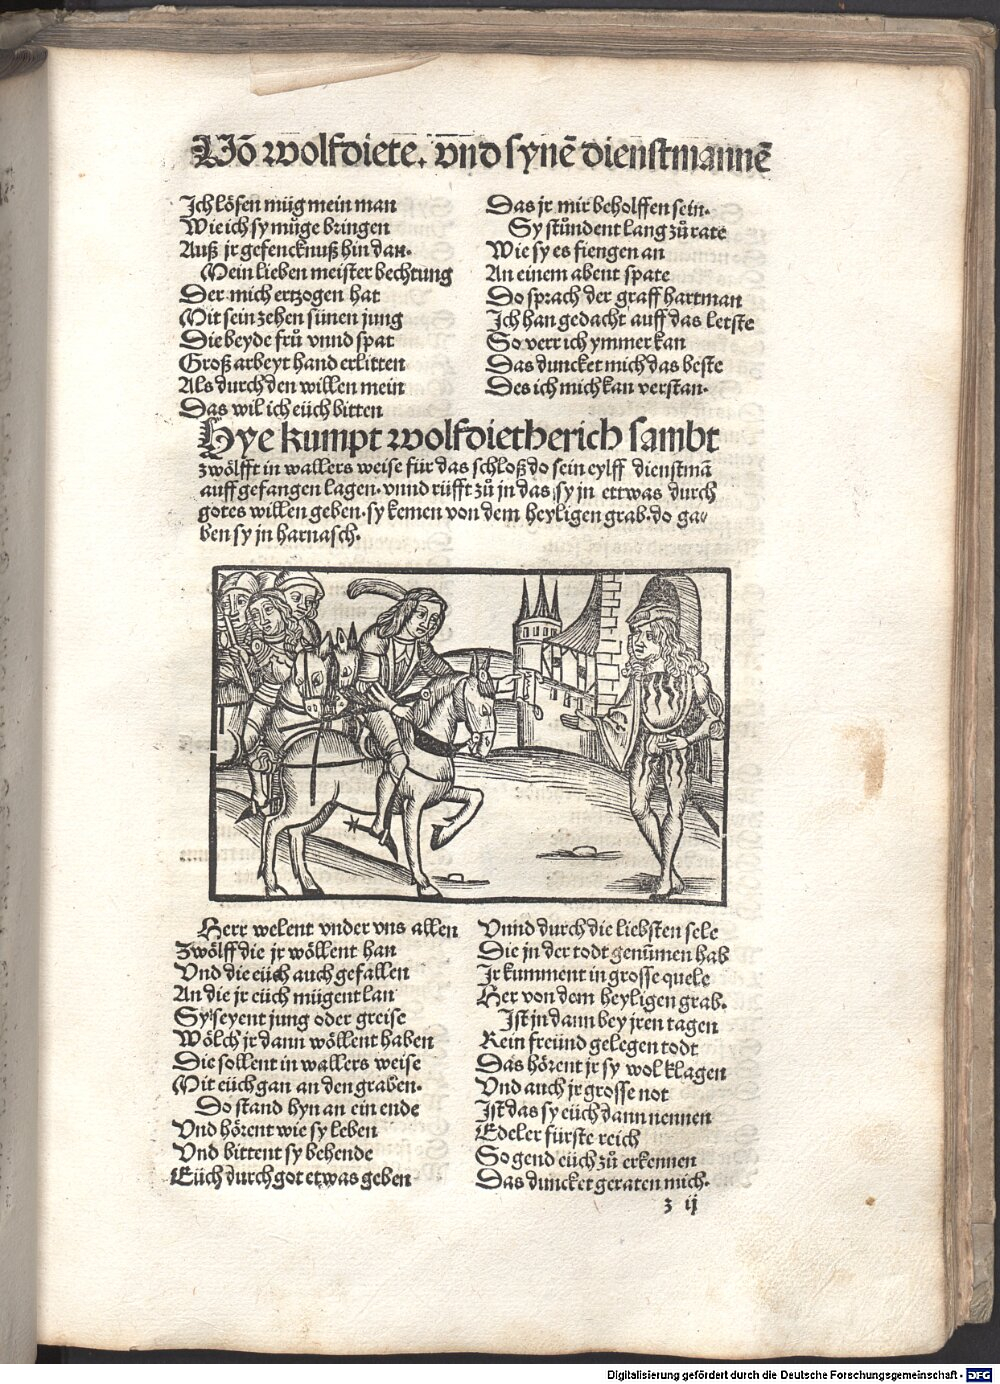 Võ wolfdiete. vnd synẽ dienstmannẽ
Ich lösen müg mein man
Wie ich sy müge bringen
Auß jr gefencknuß hin dan.
Mein lieben meister bechtung
Der mich ertzogen hat
Mit sein zehen sünen jung
Die beyde frů vnnd spat
Groß arbeyt hand erlitten
Als durch den willen mein
Das wil ich eüch bitten
Das jr mir beholffen sein.
Sy stůndent lang zů rate
Wie sy es fiengen an
An einem abent spate
Do sprach der graff hartman
Ich han gedacht auff das letste
So verr ich ymmer kan
Das duncket mich das beste
Des ich mich kan verstan.
Hye kumpt wolfdietherich sambt
zwölfft in wallers weise für das schloß do sein eylff dienstmã
auff gefangen lagen. vnnd rüfft zů jn das sy jn ettwas durch
gotes willen geben. sy kemen von dem heyligen grab. do ga-
ben sy jn harnasch.
Herr welent vnder vns allen
Zwölff die jr wöllent han
Vnd die eüch auch gefallen
An die jr eüch mügent lan
Sy seyent jung oder greise
Wölch jr dann wöllent haben
Die sollent in wallers weise
Mit eüch gan an den graben.
Do stand hyn an ein ende
Vnd hörent wie sy leben
Vnd bittent sy behende
Eüch durch got etwas geben
Vnnd durch die liebsten sele
Die jn der todt genũmen hab
Jr kumment in grosse quele
Her von dem heyligen grab.
Ist jn dann bey jren tagen
Kein freünd gelegen todt
Das hörent jr sy wol klagen
Vnd auch jr grosse not
Ist das sy eüch dann nennen
Edeler fürste reich
So gend eüch zů erkennen
Das duncket geraten mich.
z ij
Digitalisierung gefördert durch die Deutsche Forschungsgemeinschaft - DFG